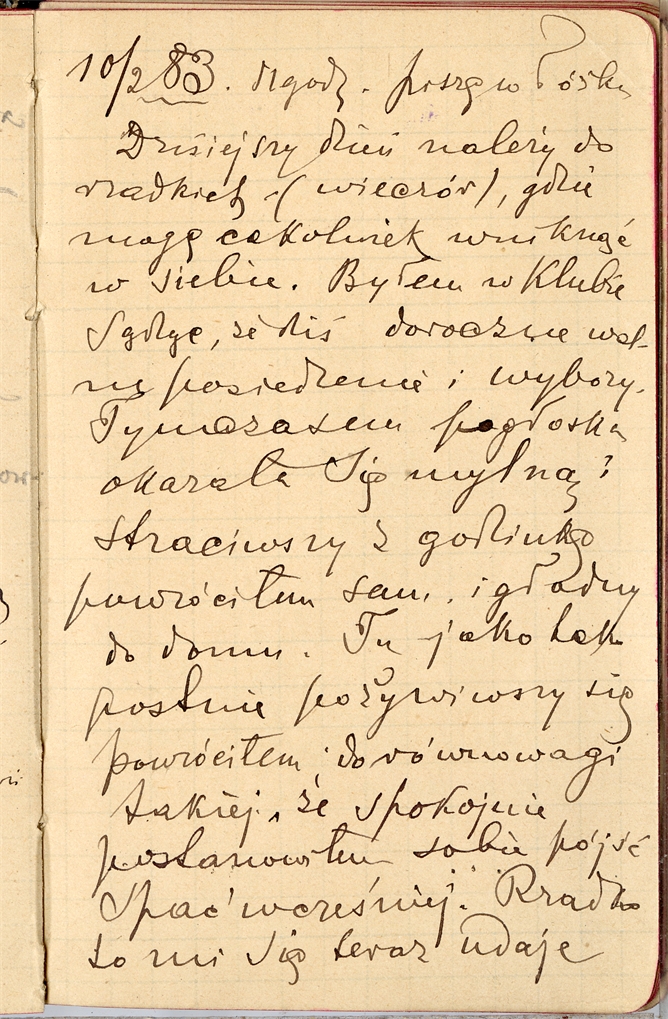 10/2 83. 11 godz. piszę w łóżku
Dzisiejszy dzień należy do
rzadkich (wieczór), gdzie
mogę cokolwiek wniknąć
w siebie. Byłem w Klubie
sądząc, że dziś doroczne wal-
ne posiedzenie i wybory.
Tymczasem pogłoska
okazała się mylną i
straciwszy 2 godzinki
powróciłem sam i głodny
do domu. Tu jako tako
postnie pożywiwszy się
powróciłem do równowagi
takiej, że spokojnie
postanowiłem sobie pójść
spać wcześniej. Rzadko
to mi się teraz udaje